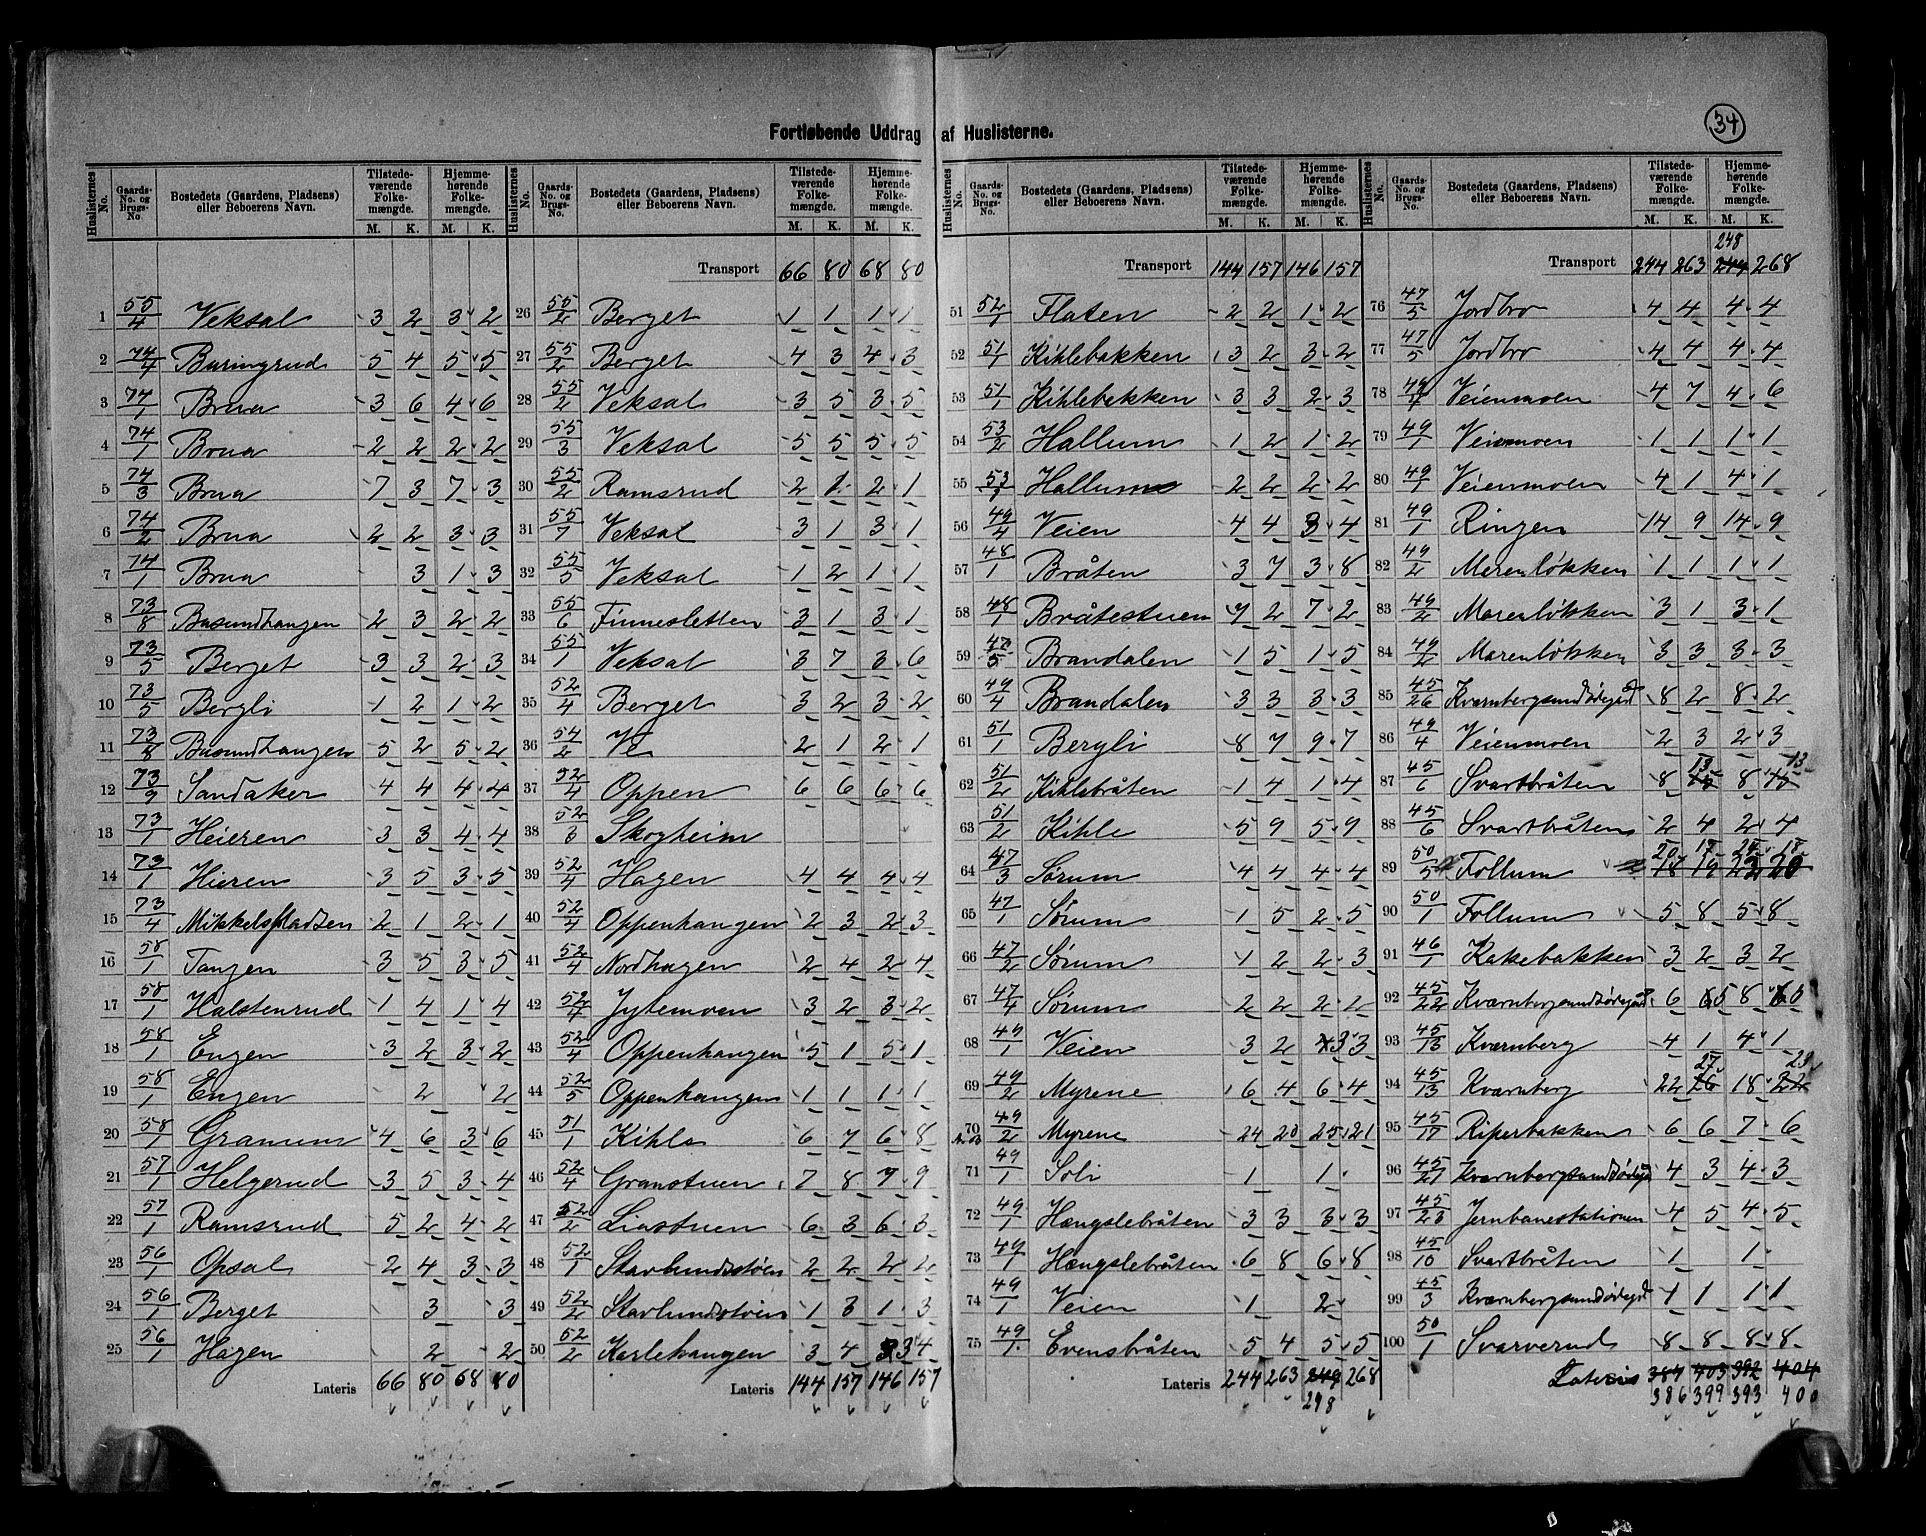 34
Fortløbende Uddrag af Huslisterne.
Huslisternes No. Gaards-No. og Brugs-No. Bostedets (Gaardens, Pladsens) eller Beboerens Navn. Tilstedeværende Folkemængde. M. K. Hjemmehørende Folkemængde. M. K.
1 55/4 Veksal 3 2 3 2
2 74/4 Buringrud 5 4 5 5
3 74/1 Brua 3 6 4 6
4 74/1 Brua 2 2 2 2
5 74/3 Brua 7 3 7 3
6 74/2 Brua 2 2 3 3
7 74/1 Brua 3 1 3
8 73/8 Busundhangen 2 3 2 2
9 73/5 Berget 3 3 2 3
10 73/5 Bergli 1 2 1 2
11 73/8 Busundhangen 5 2 5 2
12 73/9 Sandaker 4 4 4 4
13 73/1 Heieren 3 3 4 4
14 73/1 Hieren 3 5 3 5
15 73/4 Mikkelspladsen 2 1 2 1
16 58/1 Tangen 3 5 3 5
17 58/1 Halstenrud 1 4 1 4
18 58/1 Engen 3 2 3 2
19 58/1 Engen 2 2
20 58/1 Gramum 4 6 3 6
21 57/1 Helgerud 3 5 3 4
22 57/1 Ramsrud 5 2 4 2
23 56/1 Opsal 2 4 3 3
24 56/1 Berget 3 3
25 56/1 Hagen 2 2
Lateris 66 80 68 80
Huslisternes No. Gaards-No. og Brugs-No. Bostedets (Gaardens, Pladsens) eller Beboerens Navn. Tilstedeværende Folkemængde. M. K. Hjemmehørende Folkemængde. M. K.
Transport 66 80 68 80
26 55/2 Berget 1 1 1 1
27 55/2 Berget 4 3 4 3
28 55/2 Veksal 3 5 3 5
29 55/3 Veksal 5 5 5 5
30 55/2 Ramsrud 2 1 2 1
31 55/7 Veksal 3 1 3 1
32 55/5 Veksal 1 2 1 1
33 55/6 Finnesletten 3 1 3 1
34 55/1 Veksal 3 7 3 6
35 52/4 Berget 3 2 3 2
36 54/2 Ve 2 1 2 1
37 52/4 Oppen 6 6 6 6
38 52/3 Skogheim
39 52/4 Hagen 4 4 4 4
40 52/4 Oppenhangen 2 3 2 3
41 52/4 Nordhagen 2 4 2 4
42 52/4 Jytemoen 3 2 3 2
43 52/4 Oppenhangen 5 1 5 1
44 52/5 Oppenhangen 1 1 1 1
45 51/1 Kihle 6 7 6 8
46 52/4 Granstuen 7 8 7 9
47 52/2 Liastuen 6 3 6 3
48 52/1 Stavlundsstøen 2 2 2 2
49 52/2 Stavlundstøen 1 3 1 3
50 52/2 Karlehangen 3 4 3 4
Lateris 144 157 146 157
Huslisternes No. Gaards-No. og Brugs-No. Bostedets (Gaardens, Pladsens) eller Beboerens Navn. Tilstedeværende Folkemængde. M. K. Hjemmehørende Folkemængde. M. K.
Transport 144 157 146 157
51 52/1 Flaten 2 2 1 2
52 51/1 Kihlebakken 3 2 3 2
53 51/1 Kihlebakken 3 3 2 3
54 53/2 Hallum 1 2 1 2
55 53/1 Hallum 2 2 2 2
56 49/4 Veien 4 4 3 4
57 48/1 Bråten 3 7 3 8
58 48/1 Bråtestuen 7 2 7 2
59 47/5 Brandalen 1 5 1 5
60 49/4 Brandalen 3 3 3 3
61 51/1 Bergli 8 7 9 7
62 51/2 Kihlebråten 1 4 1 4
63 51/2 Kihle 5 9 5 9
64 47/3 Sørum 4 4 4 4
65 47/1 Sørum 1 5 2 5
66 47/2 Sørum 1 2 2 3
67 47/4 Sørum 2 2 2 2
68 49/1 Veien 3 2 3 3
69 49/2 Myrene 6 4 6 4
70 49/2 Myrene 24 20 25 21
71 49/1 Soli 1 1
72 49/1 Hængslebråten 3 3 3 3
73 49/1 Hængslebråten 6 8 6 8
74 49/1 Veien 1 2
75 49/1 Evensbråten 5 4 5 5
Lateris 244 263 249 268
248
Huslisternes No. Gaards-No. og Brugs-No. Bostedets (Gaardens, Pladsens) eller Beboerens Navn. Tilstedeværende Folkemængde. M. K. Hjemmehørende Folkemængde. M. K.
248
Transport 244 263 249 268
76 47/5 Jordbro 4 4 4 4
77 47/5 Jordbro 4 4 4 4
78 49/4 Veienmoen 4 7 4 6
79 49/1 Veienmoen 1 1 1 1
80 49/1 Veienmoen 4 1 4 1
81 49/1 Ringen 14 9 14 9
82 49/2 Marenløkken 1 1 1 1
83 49/2 Marenløkken 3 1 3 1
84 49/2 Marenløkken 3 3 3 3
85 45/26 Kværnbergsundødegd 8 2 8 2
86 49/4 Veienmoen 2 3 2 3
13 13
87 45/6 Svartbråten 8 8
88 45/6 Svartbråten 2 4 2 4
89 50/5 Follum
90 50/1 Follum 5 8 5 8
91 46/1 Kakebakken 3 2 3 2
92 45/22 Kværnbergsundødegd 6 5 8
93 45/13 Kværnberg 4 1 4 1
27 23
94 45/13 Kværnberg 22 26 18 22
95 45/17 Riperbakken 6 6 7 6
96 45/27 Kværnbergsundødegd 4 3 4 3
97 45/23 Jernbanestationen 4 5 4 5
98 45/10 Svartbråten 1 1
99 45/3 Kværnbergsundødegd 1 1 1 1
100 50/1 Svarverud 8 8 8 8
Lateris 384 403 392 404
386 399 393 400